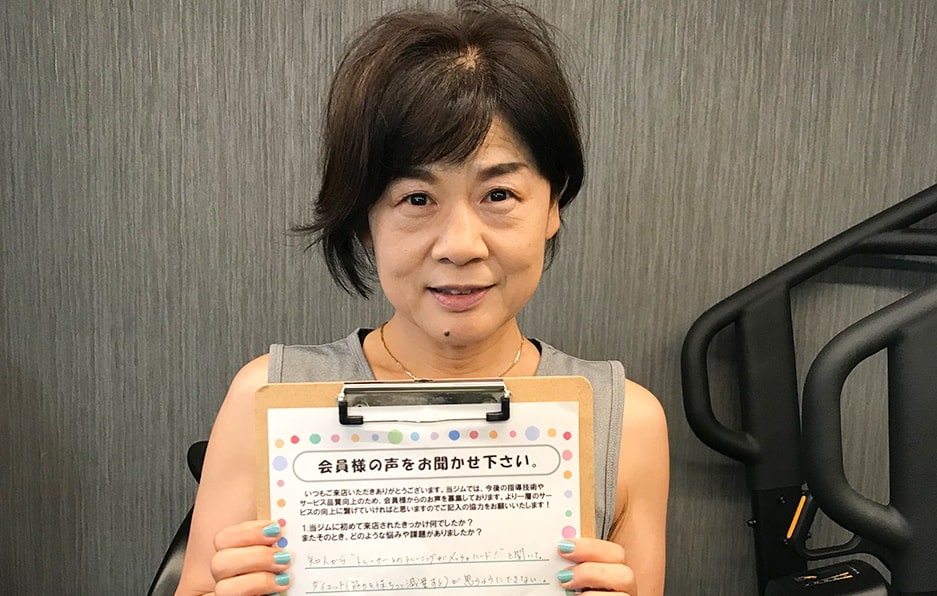 会員様の声をお聞かせ下さい。
いつもご来店いただきありがとうございます。当ジムでは、今後の指導技術や
サービス品質向上のため、会員様からのお声を募集しております。より一層のサー
ビスの向上に繋げていければと思いますのでご記入の協力をお願いいたします!
1.当ジムに初めて来店されたきっかけ何でしたか?
またそのとき、どのような悩みや課題がありましたか?
知人から"トレーナーとのトレーニングがメッチャハード!"と聞いて。
ダイエット(筋力を保ちつつ減量する)が思うようにできない。